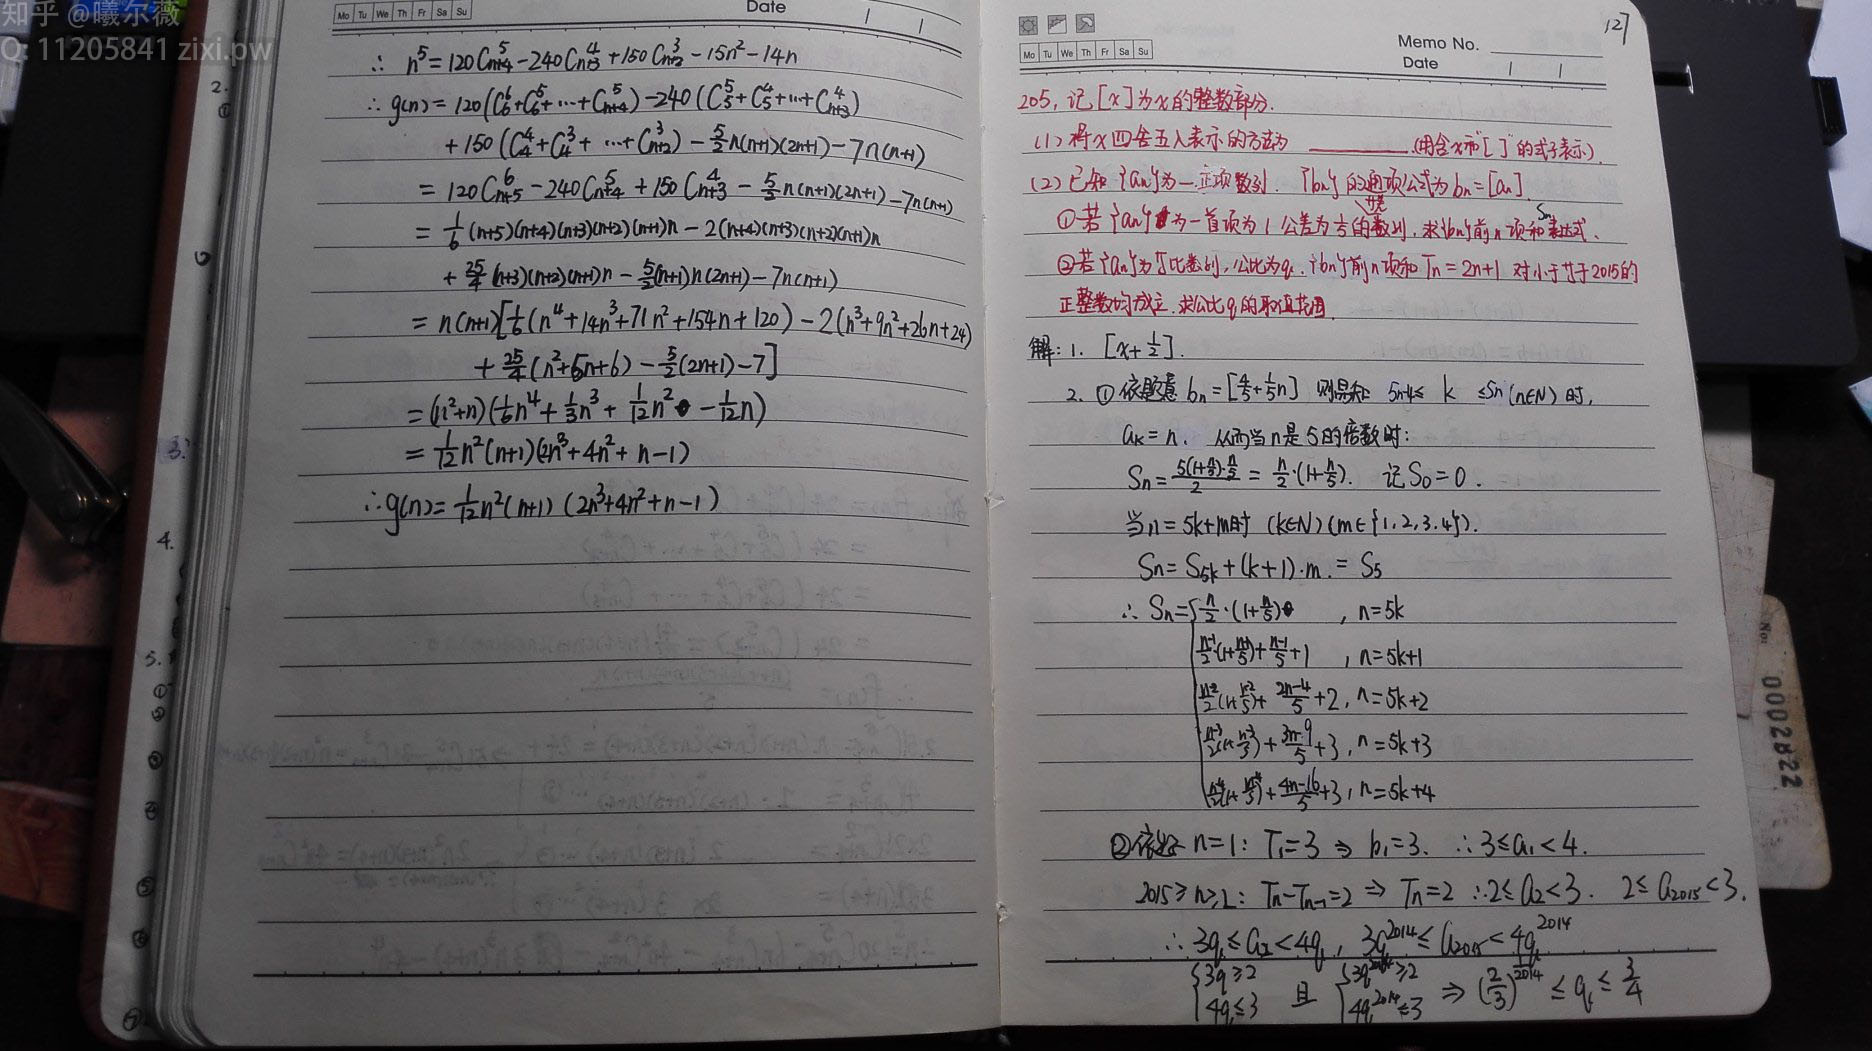 知乎 @曦尔薇
Q: 11205841 zixi.pw
Mo Tu We Th Fr Sa Su
Date
∴ n⁵ = 120C⁵ₙ₊₄ - 240C⁴ₙ₊₃ + 150C³ₙ₊₂ - 15n² - 14n
∴ g(n) = 120(C⁶₆+C⁵₆+⋯+C⁵ₙ₊₄) - 240(C⁵₅+C⁴₅+⋯+C⁴ₙ₊₃)
+ 150(C⁴₄+C³₄+ ⋯+C³ₙ₊₂) - 5/2 n(n+1)(2n+1) - 7n(n+1)
= 120C⁶ₙ₊₅ - 240C⁵ₙ₊₄ + 150C⁴ₙ₊₃ - 5/2 n(n+1)(2n+1) - 7n(n+1)
= 1/6 (n+5)(n+4)(n+3)(n+2)(n+1)n - 2(n+4)(n+3)(n+2)(n+1)n
+ 25/4 (n+3)(n+2)(n+1)n - 5/2(n+1)n(2n+1) - 7n(n+1)
= n(n+1)[1/6(n⁴+14n³+71n²+154n+120) - 2(n³+9n²+26n+24)
+ 25/4(n²+5n+6) - 5/2(2n+1) - 7]
= (n²+n)(1/6n⁴ + 1/3n³ + 1/12n² - 1/12n)
= 1/12 n²(n+1)(2n³+4n²+n-1)
∴ g(n) = 1/12 n²(n+1)(2n³+4n²+n-1)
2.
①
3.
4.
5.
127
Mo Tu We Th Fr Sa Su
Memo No.
Date
205, 记[x]为x的整数部分.
(1) 将x四舍五入表示的方法为 ______ (用含x和"[ ]"的式子表示).
(2) 已知{aₙ}为一正项数列. {bₙ}的通项公式为bₙ=[aₙ].
①若{aₙ}为一首项为1公差为1/5的等差数列, 求{bₙ}前n项和Sₙ表达式.
②若{aₙ}为等比数列, 公比为q. {bₙ}前n项和Tₙ=2n+1 对小于等于2015的
正整数均成立. 求公比q的取值范围.
解: 1. [x+1/2].
2. ①依题意 bₙ=[4/5+1/5n] 则易知 5n-4≤ k ≤5n (n∈N) 时,
aₖ=n. 从而当n是5的倍数时:
Sₙ = 5(1+n/5)·n/5 / 2 = n/2·(1+n/5). 记S₀=0.
当n=5k+m时 (k∈N)(m∈{1,2,3,4}).
Sₙ=S₅ₖ+(k+1)·m. = S₅
∴ Sₙ={ n/2·(1+n/5) , n=5k
n-1/2·(1+n-1/5)+n-1/5+1 , n=5k+1
n-2/2(1+n-2/5)+ 2n-4/5+2, n=5k+2
n-3/2(1+n-3/5)+ 3n-9/5+3, n=5k+3
n-4/2(1+n-4/5)+ 4n-16/5+3, n=5k+4
② n=1: T₁=3 ⇒ b₁=3. ∴ 3≤a₁<4.
2015≥n≥2: Tₙ-Tₙ₋₁=2 ⇒ Tₙ=2 ∴2≤a₂<3. 2≤a₂₀₁₅<3.
∴ 3q≤a₂<4q, 3q²⁰¹⁴≤a₂₀₁₅<4q²⁰¹⁴
{3q≥2 4q≤3 且 {3q²⁰¹⁴≥2 4q²⁰¹⁴≤3 ⇒ (2/3)^(1/2014) ≤ q ≤ 3/4
No:
0002822